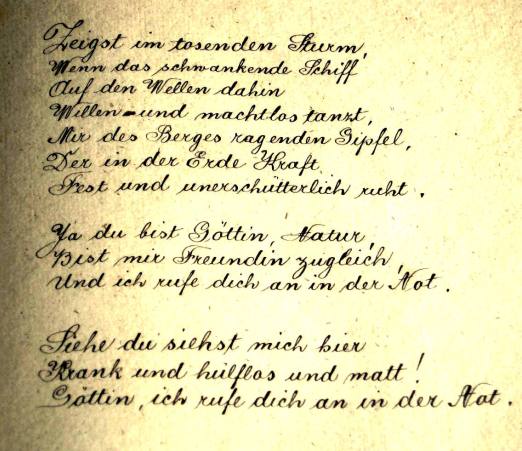 Zeigst im tosenden Sturm,
Wenn das schwankende Schiff
Auf den Wellen dahin
Willen- und machtlos tanzt,
Mir des Berges ragenden Gipfel,
Der in der Erde Kraft
Fest und unerschütterlich ruht.
Ja du bist Göttin, Natur,
Bist mir Freundin zugleich,
Und ich rufe dich an in der Not.
Siehe du siehst mich hier
Krank und hülflos und matt!
Göttin, ich rufe dich an in der Not.